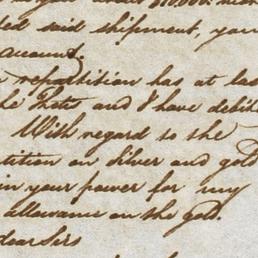 said shipment, you
account.
repartition has at la
the Frets and I have debite
With regard to the
tition on Silver and gold
in your power for my
allowance on the gold.
dear Sirs